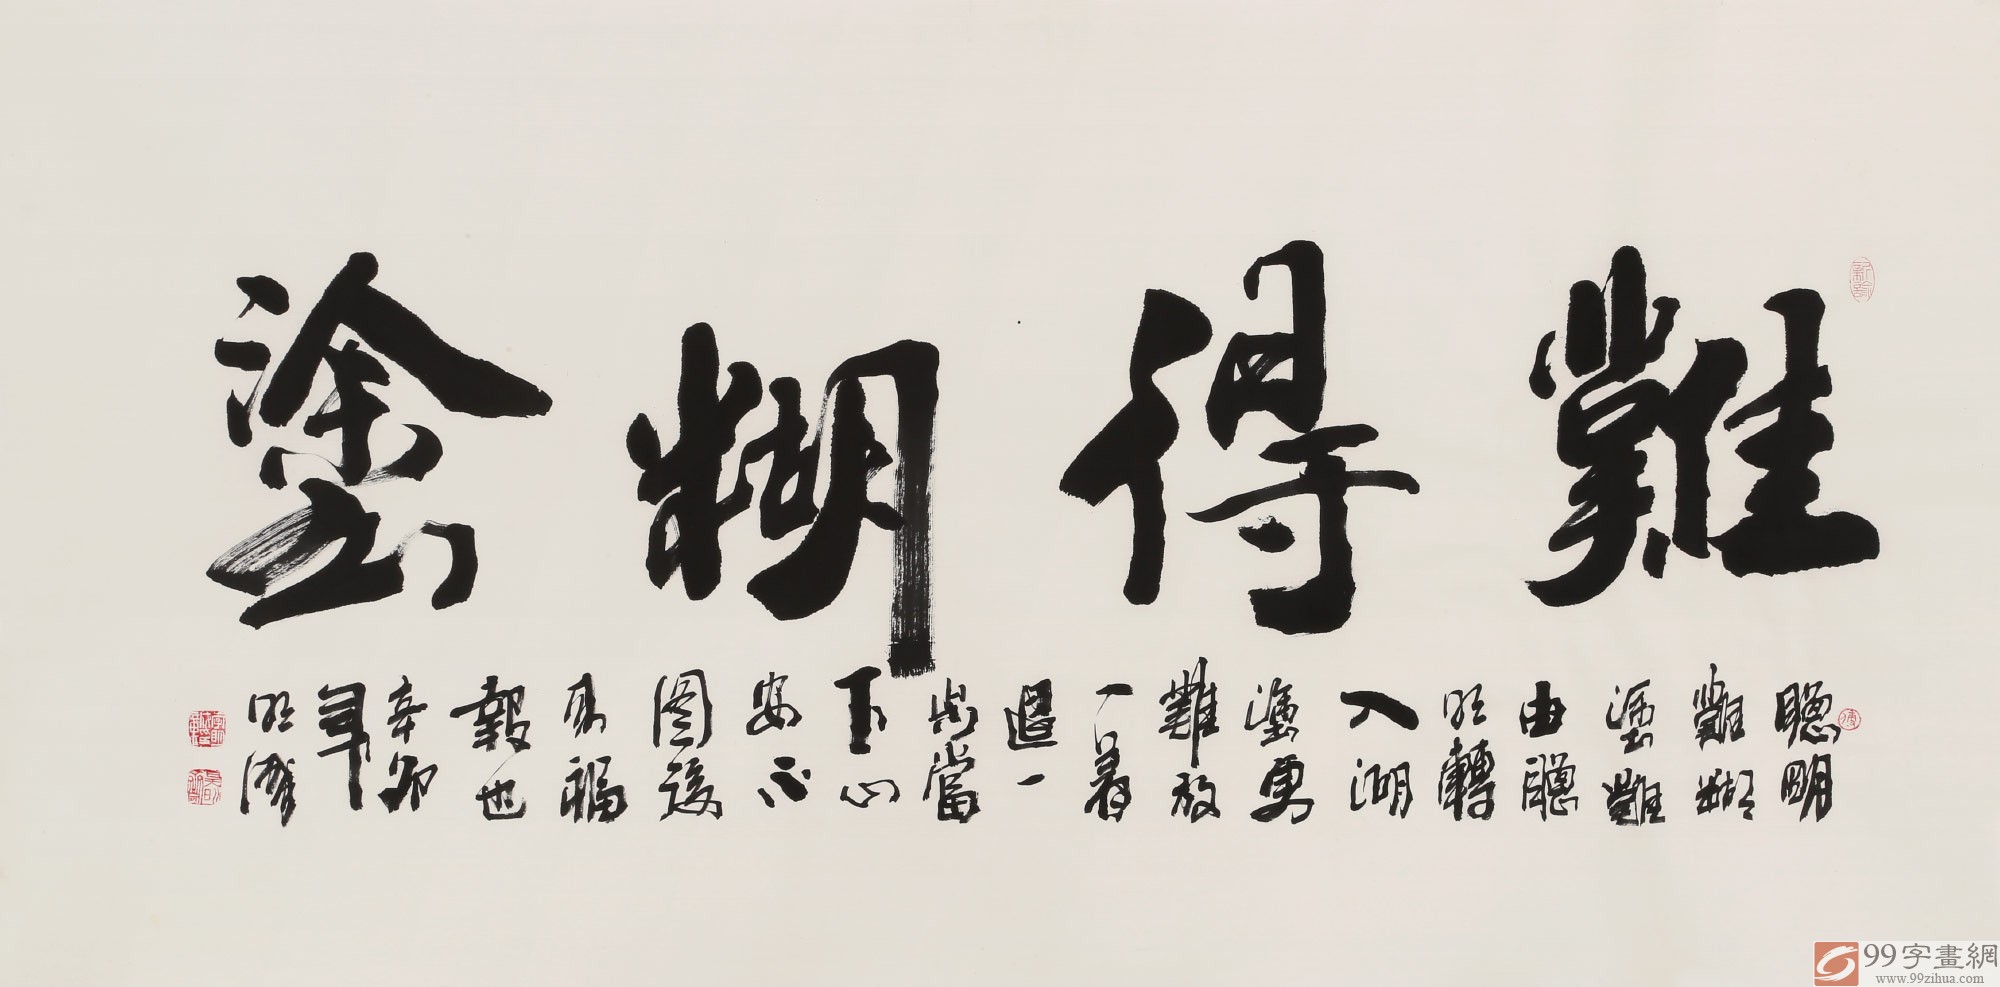 難得糊塗
聰明
難糊
塗難
由聰
明轉
入湖
塗更
難放
一着
退一
步當
下心
安不
图後
來福
報也
辛卯
年
明
99字畫網
www.99zihua.com